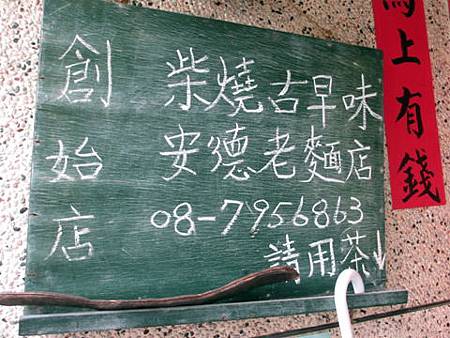 創始店
柴燒古早味
安德老麵店
08-7956863
請用茶↓
馬上有錢